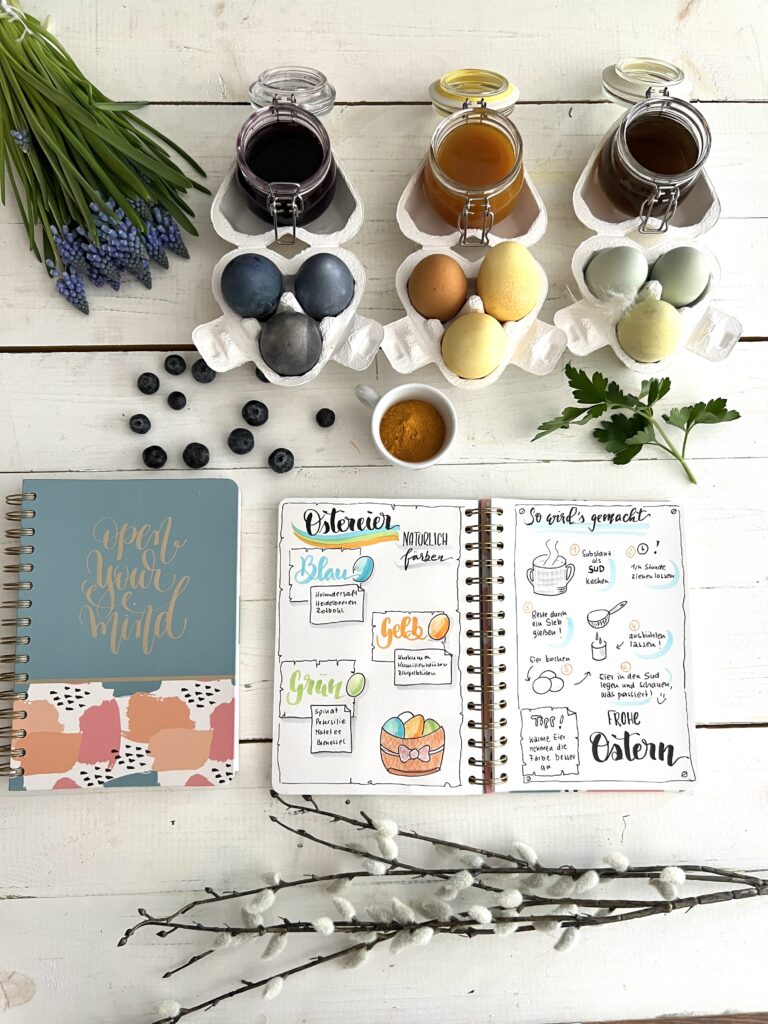 open
your
mind
Ostereier
NATÜRLICH
färben
Blau
Holundersaft
Heidelbeeren
Rotkohl
Gelb
Kurkuma
Kamillenblüten
Grün
Spinat
Petersilie
Matetee
Brennessel
So wird's gemacht
1 Substanz
als
SUD
kochen
2 !
1/2 Stunde
ziehen lassen!
3
Reste durch
ein Sieb
gießen!
4
auskühlen
lassen!
Eier kochen 5
6
Eier in den Sud
legen und schauen,
was passiert!
TIPP!
Warme Eier
nehmen die
Farbe besser
an
FROHE
Ostern